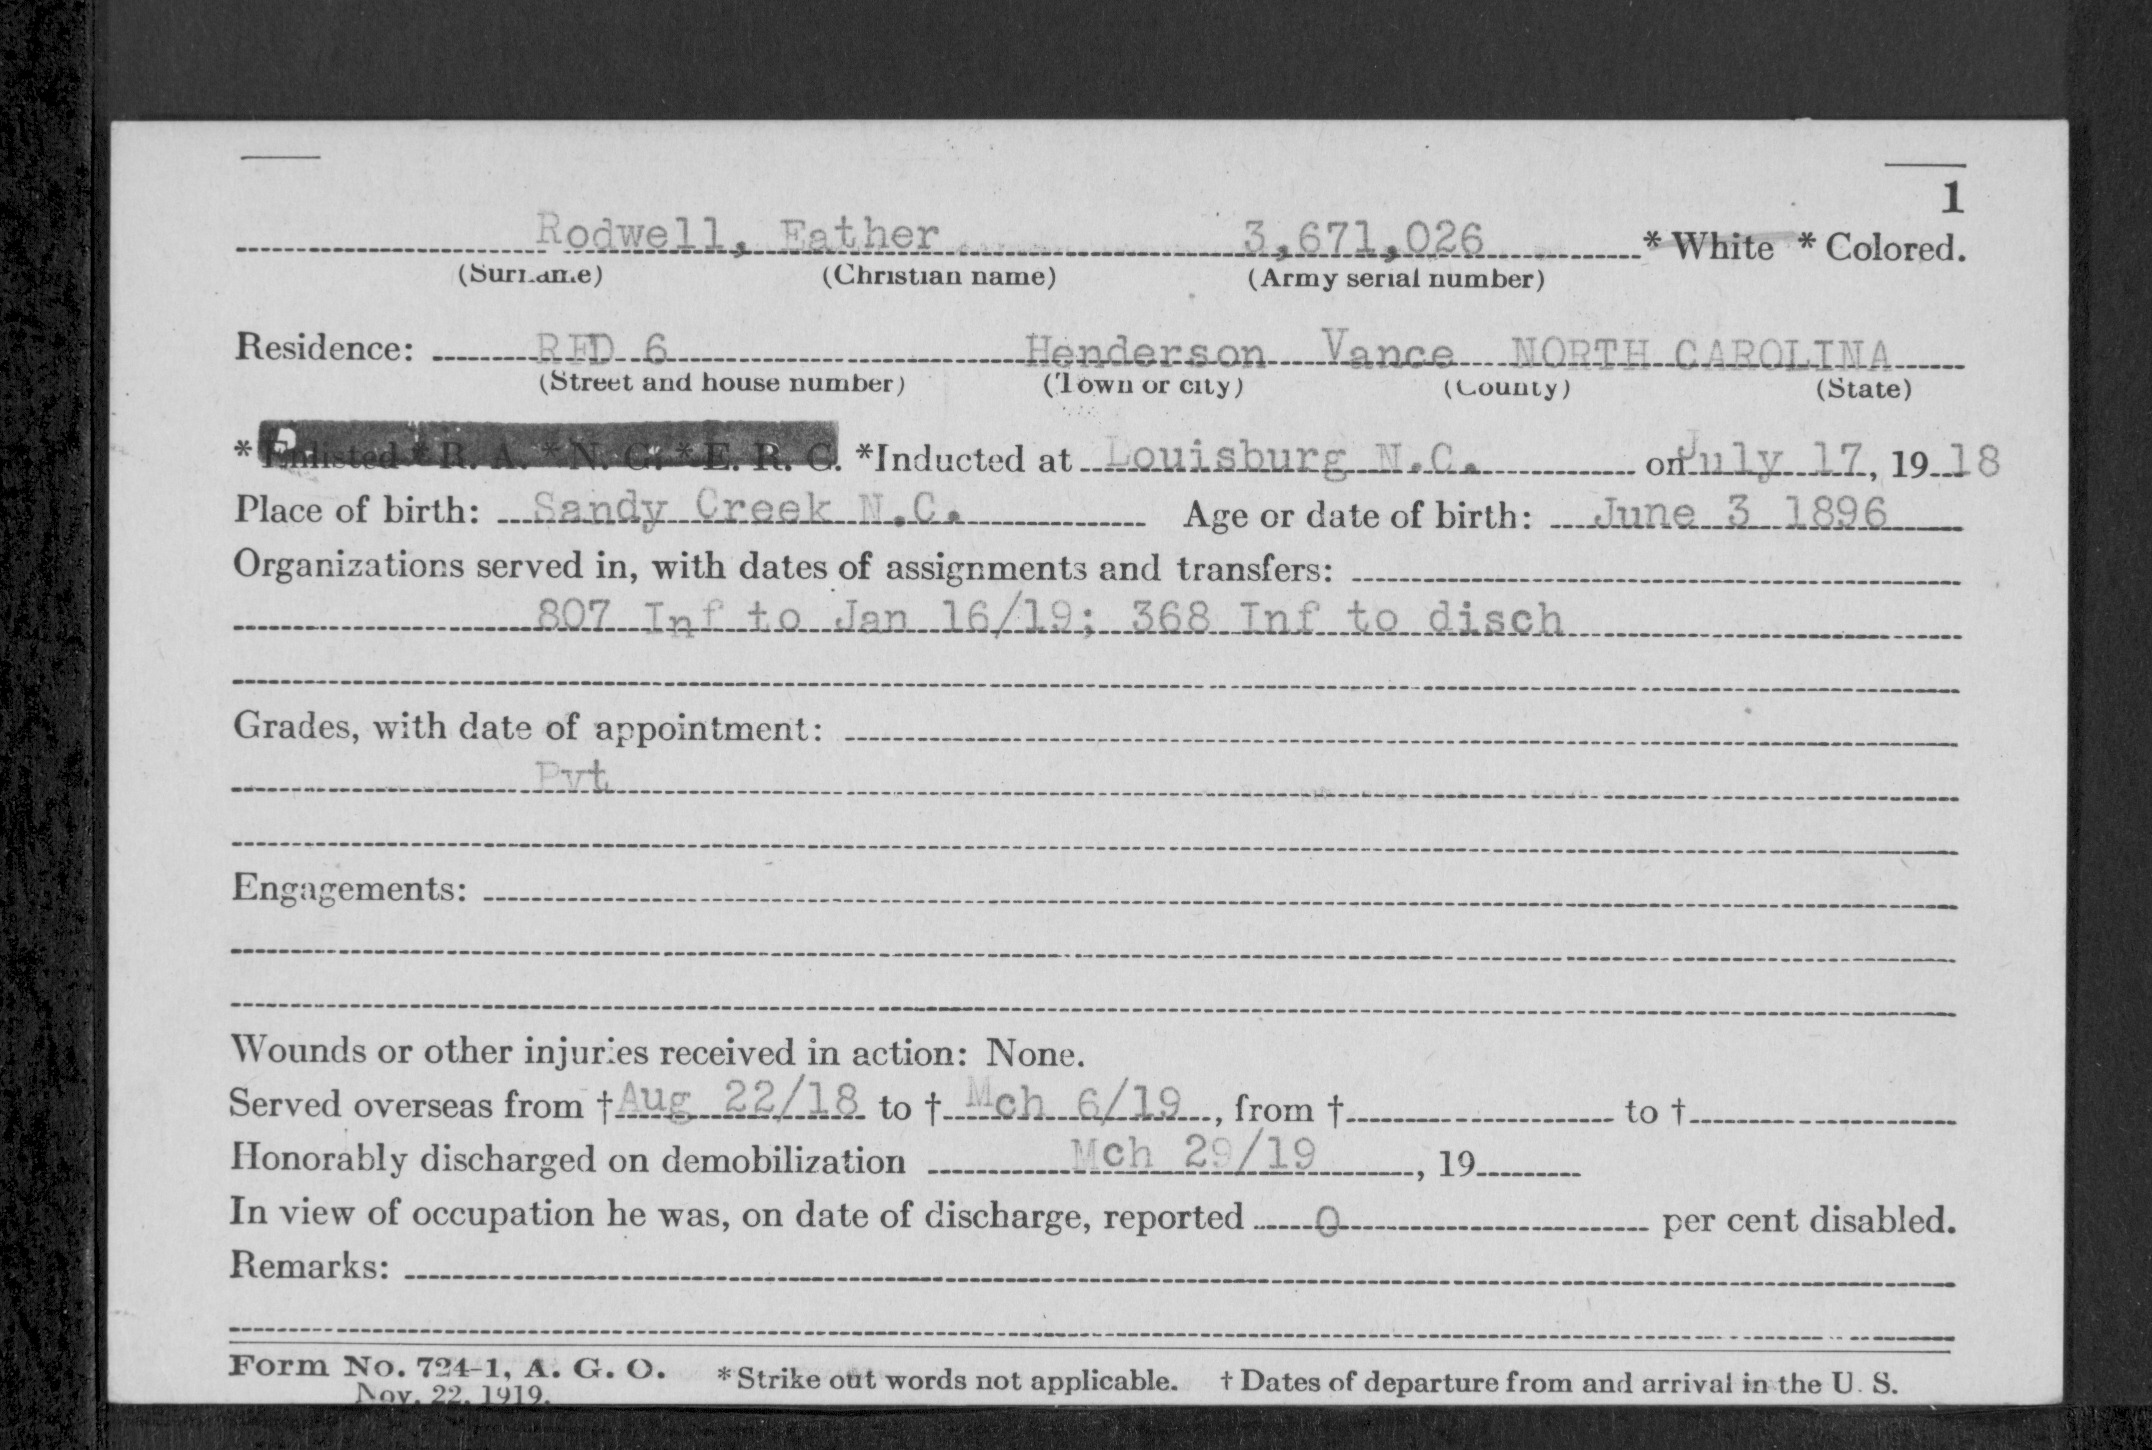 1
Rodwell, Eather 3,671,026 * White * Colored.
(Surname) (Christian name) (Army serial number)
Residence: RFD 6 Henderson Vance NORTH CAROLINA
(Street and house number) (Town or city) (County) (State)
* Enlisted * R. A. * N. G. * E. R. C. *Inducted at Louisburg N.C. on July 17, 19 18
Place of birth: Sandy Creek N.C. Age or date of birth: June 3 1896
Organizations served in, with dates of assignments and transfers:
807 Inf to Jan 16/19; 368 Inf to disch
Grades, with date of appointment:
Pvt
Engagements:
Wounds or other injuries received in action: None.
Served overseas from † Aug 22/18 to † Mch 6/19, from † to †
Honorably discharged on demobilization Mch 29/19, 19
In view of occupation he was, on date of discharge, reported 0 per cent disabled.
Remarks:
Form No. 724-1, A. G. O. * Strike out words not applicable. † Dates of departure from and arrival in the U. S.
Nov. 22, 1919.